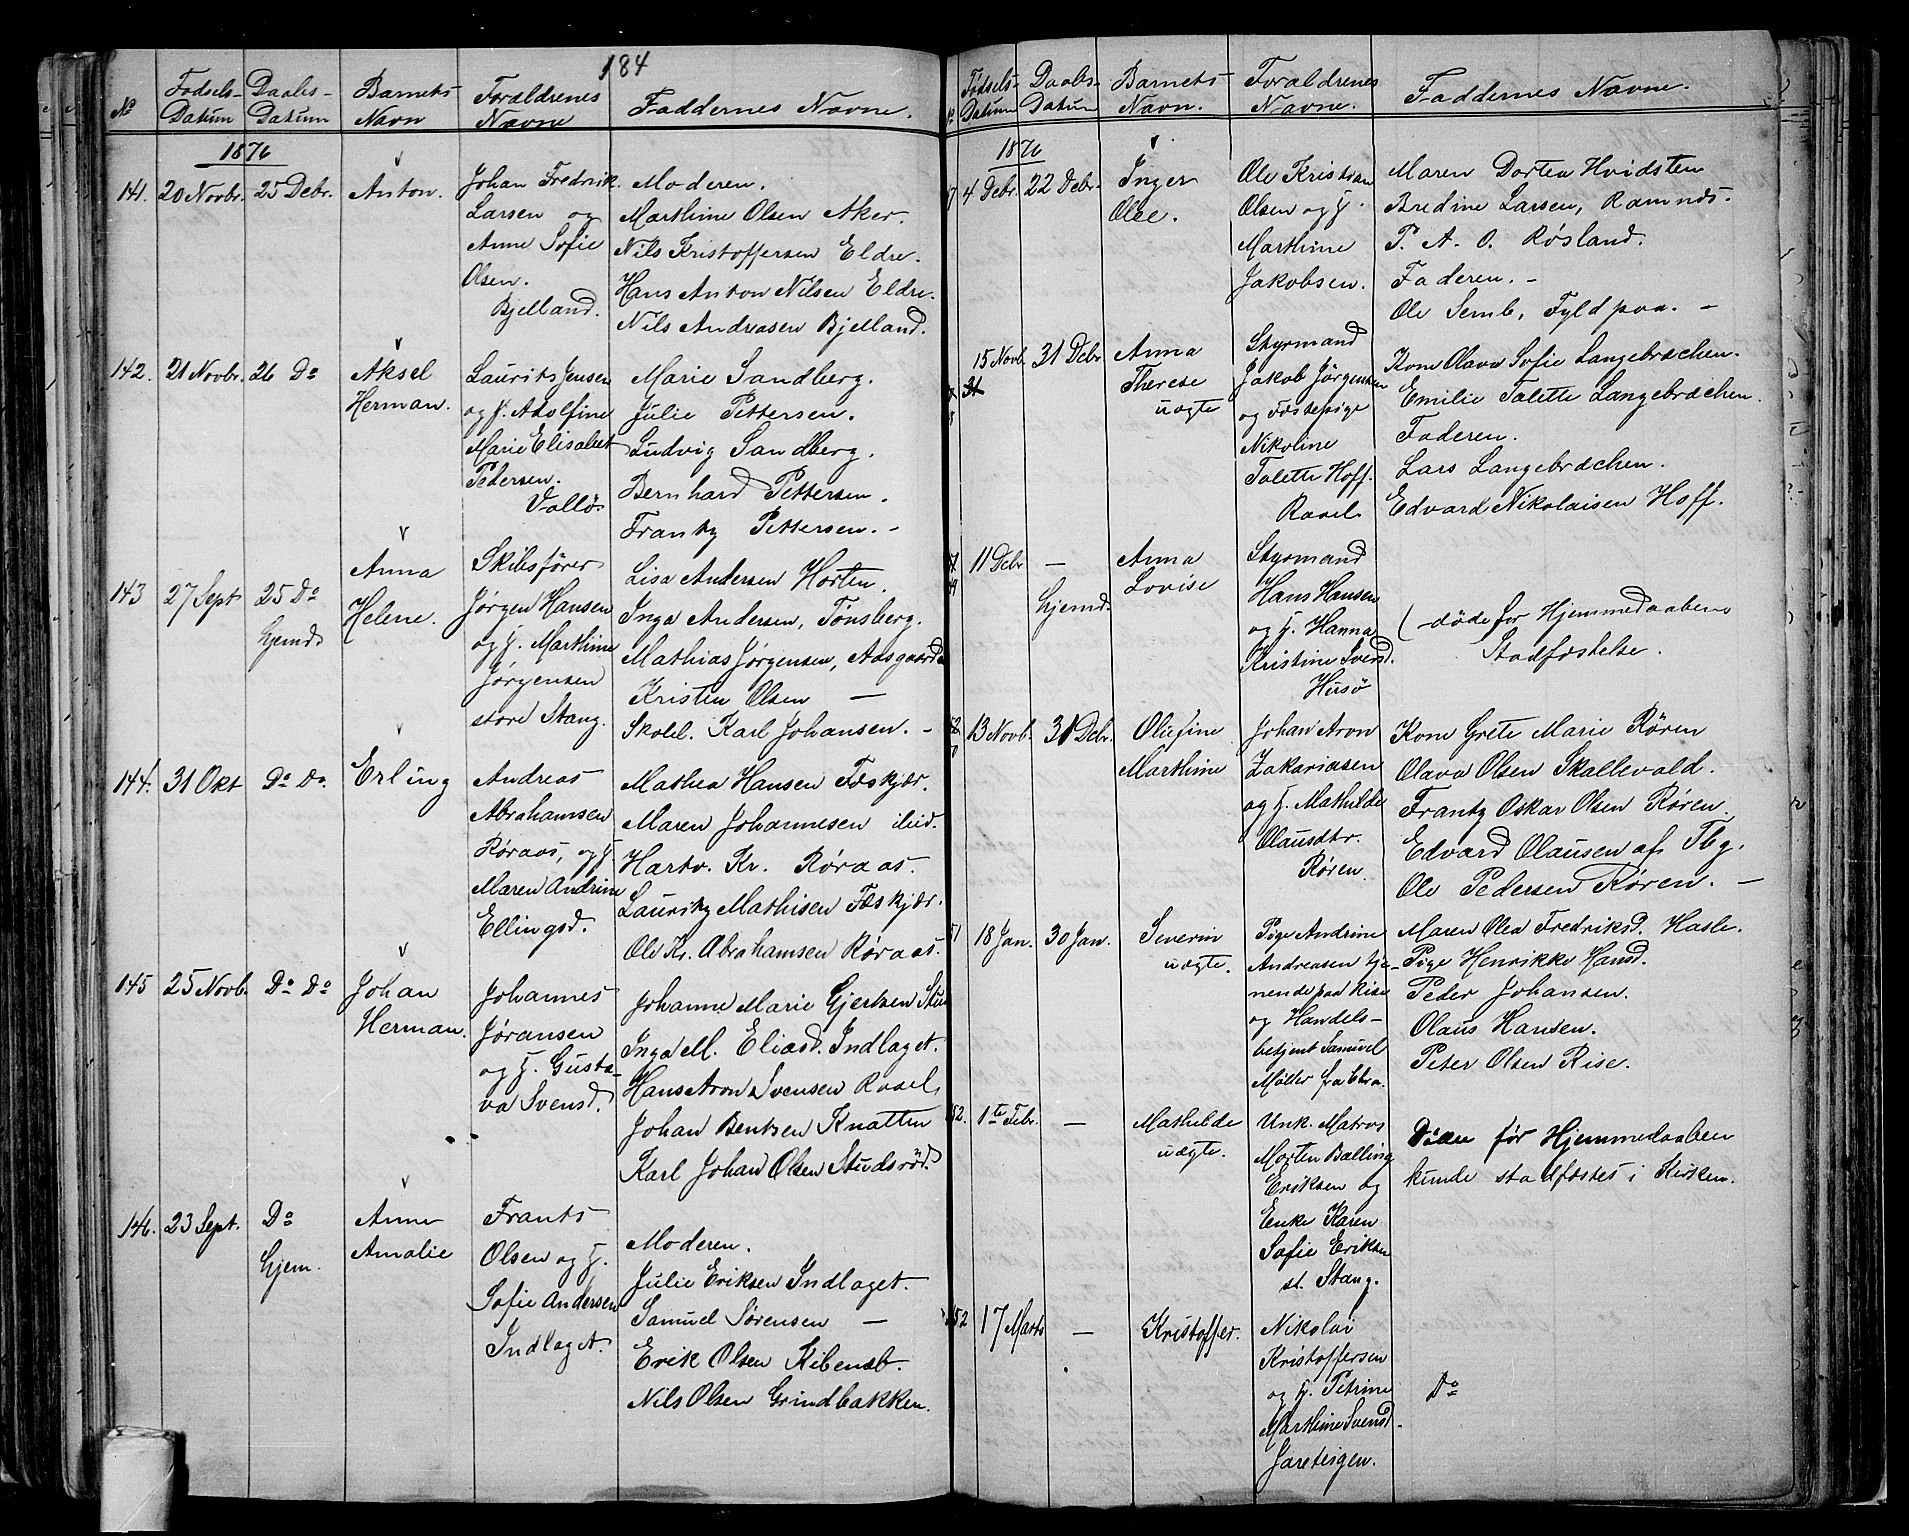 184
No
Fødsels-
Datum
Daabs-
Datum
Barnets
Navn
Forældrenes
Navne
Faddernes Navne.
1876
141.
20 Novbr.
25 Debr.
Anton.
Johan Fredrik
Larsen og
Anne Sofie
Olsen.
Bjelland.
Moderen.
Marthine Olsen Aker.
Nils Kristoffersen Eldre.
Hans Anton Nilsen Eldre.
Nils Andreasen Bjelland.
142.
21 Novbr.
26 Do
Aksel
Herman.
Laurits Jensen
og H. Adolfine
Marie Elisabet
Pedersen.
Vallø
Marie Sandberg.
Julie Pettersen.
Ludvig Sandberg.
Bernhard Pettersen.
Frantz Pettersen. -
143
27 Sept
25 Do
hjemd
Anna
Helene.
Skibsfører
Jørgen Hansen
og H. Marthine
Jørgensen
store Stang.
Lisa Andersen Horten.
Inga Andersen, Tønsberg.
Mathias Jørgensen, Aasgaard
Kristen Olsen —
Skolel. Karl Johansen. -
144.
31 Okt
Do Do.
Erling
Andreas
Abrahamsen
Røraas, og H.
Maren Andrine
Ellingsd.
Mathea Hansen Fæskjær.
Maren Johannesen ibid.
Hartv. Kr. Røraas.
Lauritz Mathisen Fæskjær.
Ole Kr. Abrahamsen Røraas.
145
25 Novb.
Do Do
Johan
Herman.
Johannes
Jøransen
og H. Gusta-
va Svensd.
Johanne Marie Gjertsen
Inga M. Eliasd. Indlaget.
Hans Aron Svensen Rael
Johan Bentsen Knatten
Karl Johan Olsen Studsrød.
146.
23 Sept.
Do
hjem.
Anne
Amalie
Frants
Olsen og H.
Sofie Andersen
Indlaget.
Moderen.
Julie Eriksen Indlaget.
Samuel Sørensen —
Erik Olsen
Nils Olsen Grindbakken.
Fødsels-
Datum
Daabs-
Datum
Barnets
Navn.
Forældrenes
Navne.
Faddernes Navne.
1876
4 Debr.
22 Debr.
Inger
Olee.
Ole Kristian
Olsen og H.
Marthine
Jakobsen.
Maren Dortea Hvidsten
Bredine Larsen, Ramnds.
P. A. O. Røsland.
Faderen. -
Ole Semb, Fyldpaa. -
15 Novb.
31
31 Debr
Anna
Therese
uægte
Styrmand
Jakob Jørgensen
og Fæstepige
Nikoline
Talette Hoff.
Rael
Kone Olava Sofie Langebræchen.
Emilie Talette Langebræchen.
Faderen.
Lars Langebræchen.
Edvard Nikolaisen Hoff.
11 Debr
—
hjemd.
Anna
Lovise
Styrmand
Hans Hansen
og H. Hanna
Kristine Svensd.
Husø
(-døde før Hjemmedaabens
Stadfæstelse.
13 Novb.
31 Debr.
Oliefine
Marthine
Johan Aron
Zakariasen
og H. Mathilde
Olausdtr.
Røren.
Kone Grete Marie Røren
Olava Olsen Skallevald.
Frantz Oskar Olsen Røren.
Edvard Olausen af Tbg.
Ole Pedersen Røren. —
51
18 Jan.
30 Jan.
Severin
uægte.
Pige Andrine
Andreasen tje-
nende paa Rise
og Handels-
betjent Samuel
Møller fra Chra.
Maren Olea Fredriksd. Hasle.
Pige Henrikke Hansd.
Peder Johansen.
Olaus Hansen.
Peter Olsen Rise.
52.
1te Febr.
—
Mathilde
uægte.
Unk. Matros
Morten Balling
Eriksen og
Enke Karen
Sofie Eriksen
st. Stang.
Døde før Hjemmedaaben
kunde stadfæstes i Kirken.
152
17 Marts
—
Kristoffer.
Nikolai
Kristoffersen
og H. Petrine
Marthine Svensd.
Jareteigen.
Do